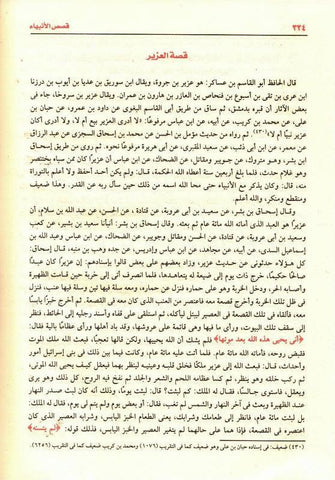 ٣٣٤
قصص الأنبياء
قصة العزير
قال الحافظ أبو القاسم بن عساكر: هو عزير بن جروة، ويقال ابن سوريق بن عديا بن أيوب بن درزنا
ابن عرى بن تقى بن أسبوع بن فنحاص بن العازر بن هارون بن عمران. ويقال عزير بن سروخا، جاء فى
بعض الآثار أن قبره بدمشق، ثم ساق من طريق أبى القاسم البغوى عن داود بن عمرو، عن حبان بن
على، عن محمد بن كريب، عن أبيه، عن ابن عباس مرفوعًا: «لا أدرى العزير بيع أم لا، ولا أدرى أكان
عزير نبيًا أم لا»(٤٣٠) ثم رواه من حديث مؤمل بن الحسن عن محمد بن إسحاق السجزى عن عبد الرزاق
عن معمر، عن ابن أبى ذئب، عن سعيد المقبرى، عن أبى هريرة مرفوعًا نحوه. ثم روى من طريق إسحاق
ابن بشر، وهو متروك، عن جويبر ومقاتل، عن الضحاك، عن ابن عباس أن عزيرًا كان من سباه بختنصر
وهو غلام حدث، فلما بلغ أربعين سنة أعطاه الله الحكمة. قال: ولم يكن أحد أحفظ ولا أعلم بالتوراة
منه، قال: وكان يذكر مع الأنبياء حتى محا الله اسمه من ذلك حين سأل ربه عن القدر. وهذا ضعيف
ومنقطع ومنكر، والله أعلم.
وقال إسحاق بن بشر، عن سعيد بن أبى عروبة، عن قتادة، عن الحسن، عن عبد الله بن سلام، أن
عزيرًا هو العبد الذى أماته الله مائة عام ثم بعثه. وقال إسحاق بن بشر: أنبأنا سعيد بن بشير، عن كعب
وسعيد بن أبى عروبة، عن قتادة، عن الحسن ومقاتل وجويبر، عن الضحاك، عن ابن عباس وعبد الله بن
إسماعيل السدى، عن أبيه، عن مجاهد، عن ابن عباس وإدريس، عن جده وهب بن منبه، قال إسحاق:
كل هؤلاء حدثونى عن حديث عزير، وزاد بعضهم على بعض قالوا بإسنادهم: إن عزيرًا كان عبدًا
صالحًا حكيمًا، خرج ذات يوم إلى ضيعة له يتعاهدها، فلما انصرف أتى إلى خربة حين قامت الظهيرة
وأصابه الحر، ودخل الخربة وهو على حماره فنزل عن حماره، ومعه سلة فيها تين وسلة فيها عنب، فنزل
فى ظل تلك الخربة وأخرج قصعة معه فاعتصر من العنب الذى كان معه فى القصعة. ثم أخرج خبزًا يابسًا
معه، فألقاه فى تلك القصعة فى العصير ليبتل ليأكله، ثم استلقى على قفاه وأسند رجليه إلى الحائط، فنظر
إلى سقف تلك البيوت، ورأى ما فيها وهى قائمة على عروشها، وقد باد أهلها ورأى عظامًا بالية فقال:
﴿أنى يحيى هذه الله بعد موتها﴾ فلم يشك أن الله يحييها، ولكن قالها تعجبًا، فبعث الله ملك الموت
فقبض روحه، فأماته الله مائة عام. فلما أتت عليه مائة عام، وكانت فيما بين ذلك فى بنى إسرائيل أمور
وأحداث. قال: فبعث الله إلى عزير ملكًا فخلق قلبه ليعقل به وعينيه لينظر بهما فيعقل كيف يحيى الله الموتى،
ثم ركب خلقه وهو ينظر، ثم كسا عظامه اللحم والشعر والجلد ثم نفخ فيه الروح، كل ذلك وهو يرى
ويعقل، فاستوى جالسًا، فقال له الملك: كم لبثت؟ قال: لبثت يومًا، وذلك أنه كان لبث صدر النهار
عند الظهيرة وبعث فى آخر النهار والشمس لم تغب، فقال: أو بعض يوم ولم يتم لى يوم. فقال له الملك:
بل لبثت مائة عام، فانظر إلى طعامك وشرابك، يعنى الطعام الخبز اليابس، وشرابه العصير الذى كان
اعتصره فى القصعة، فإذا هما على حالهما لم يتغير العصير والخبز اليابس، فذلك قوله: ﴿لم يتسنه﴾
(٤٣٠) ضعيف: فى إسناده حبان بن على وهو ضعيف كما فى التقريب (١٠٧٦) ومحمد بن كريب ضعيف كما فى التقريب (٦٢٥٦)